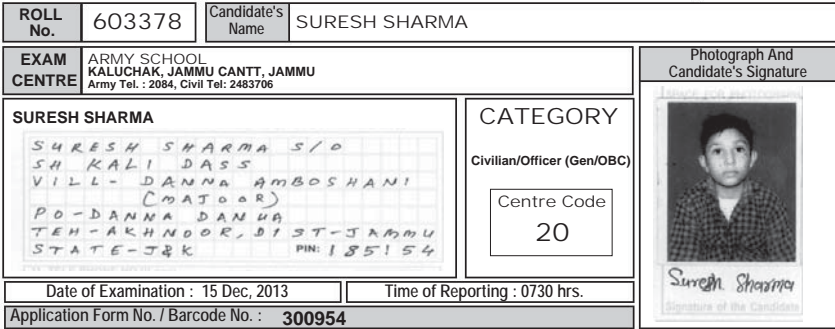 ROLL No. 603378 Candidate's Name SURESH SHARMA
EXAM CENTRE
ARMY SCHOOL
KALUCHAK, JAMMU CANTT, JAMMU
Army Tel. : 2084, Civil Tel: 2483706
Photograph And
Candidate's Signature
SPACE FOR PHOTOGRAPH
SURESH SHARMA
SURESH SHARMA S/O
SH KALI DASS
VILL- DANNA AMBOSHANI
(MAJOOR)
PO-DANNA DANUA
TEH-AKHNOOR, DIST-JAMMU
STATE-J&K PIN: 185154
CATEGORY
Civilian/Officer (Gen/OBC)
Centre Code
20
Suresh Sharma
Signature of the Candidate
Date of Examination : 15 Dec, 2013 Time of Reporting : 0730 hrs.
Application Form No. / Barcode No. : 300954